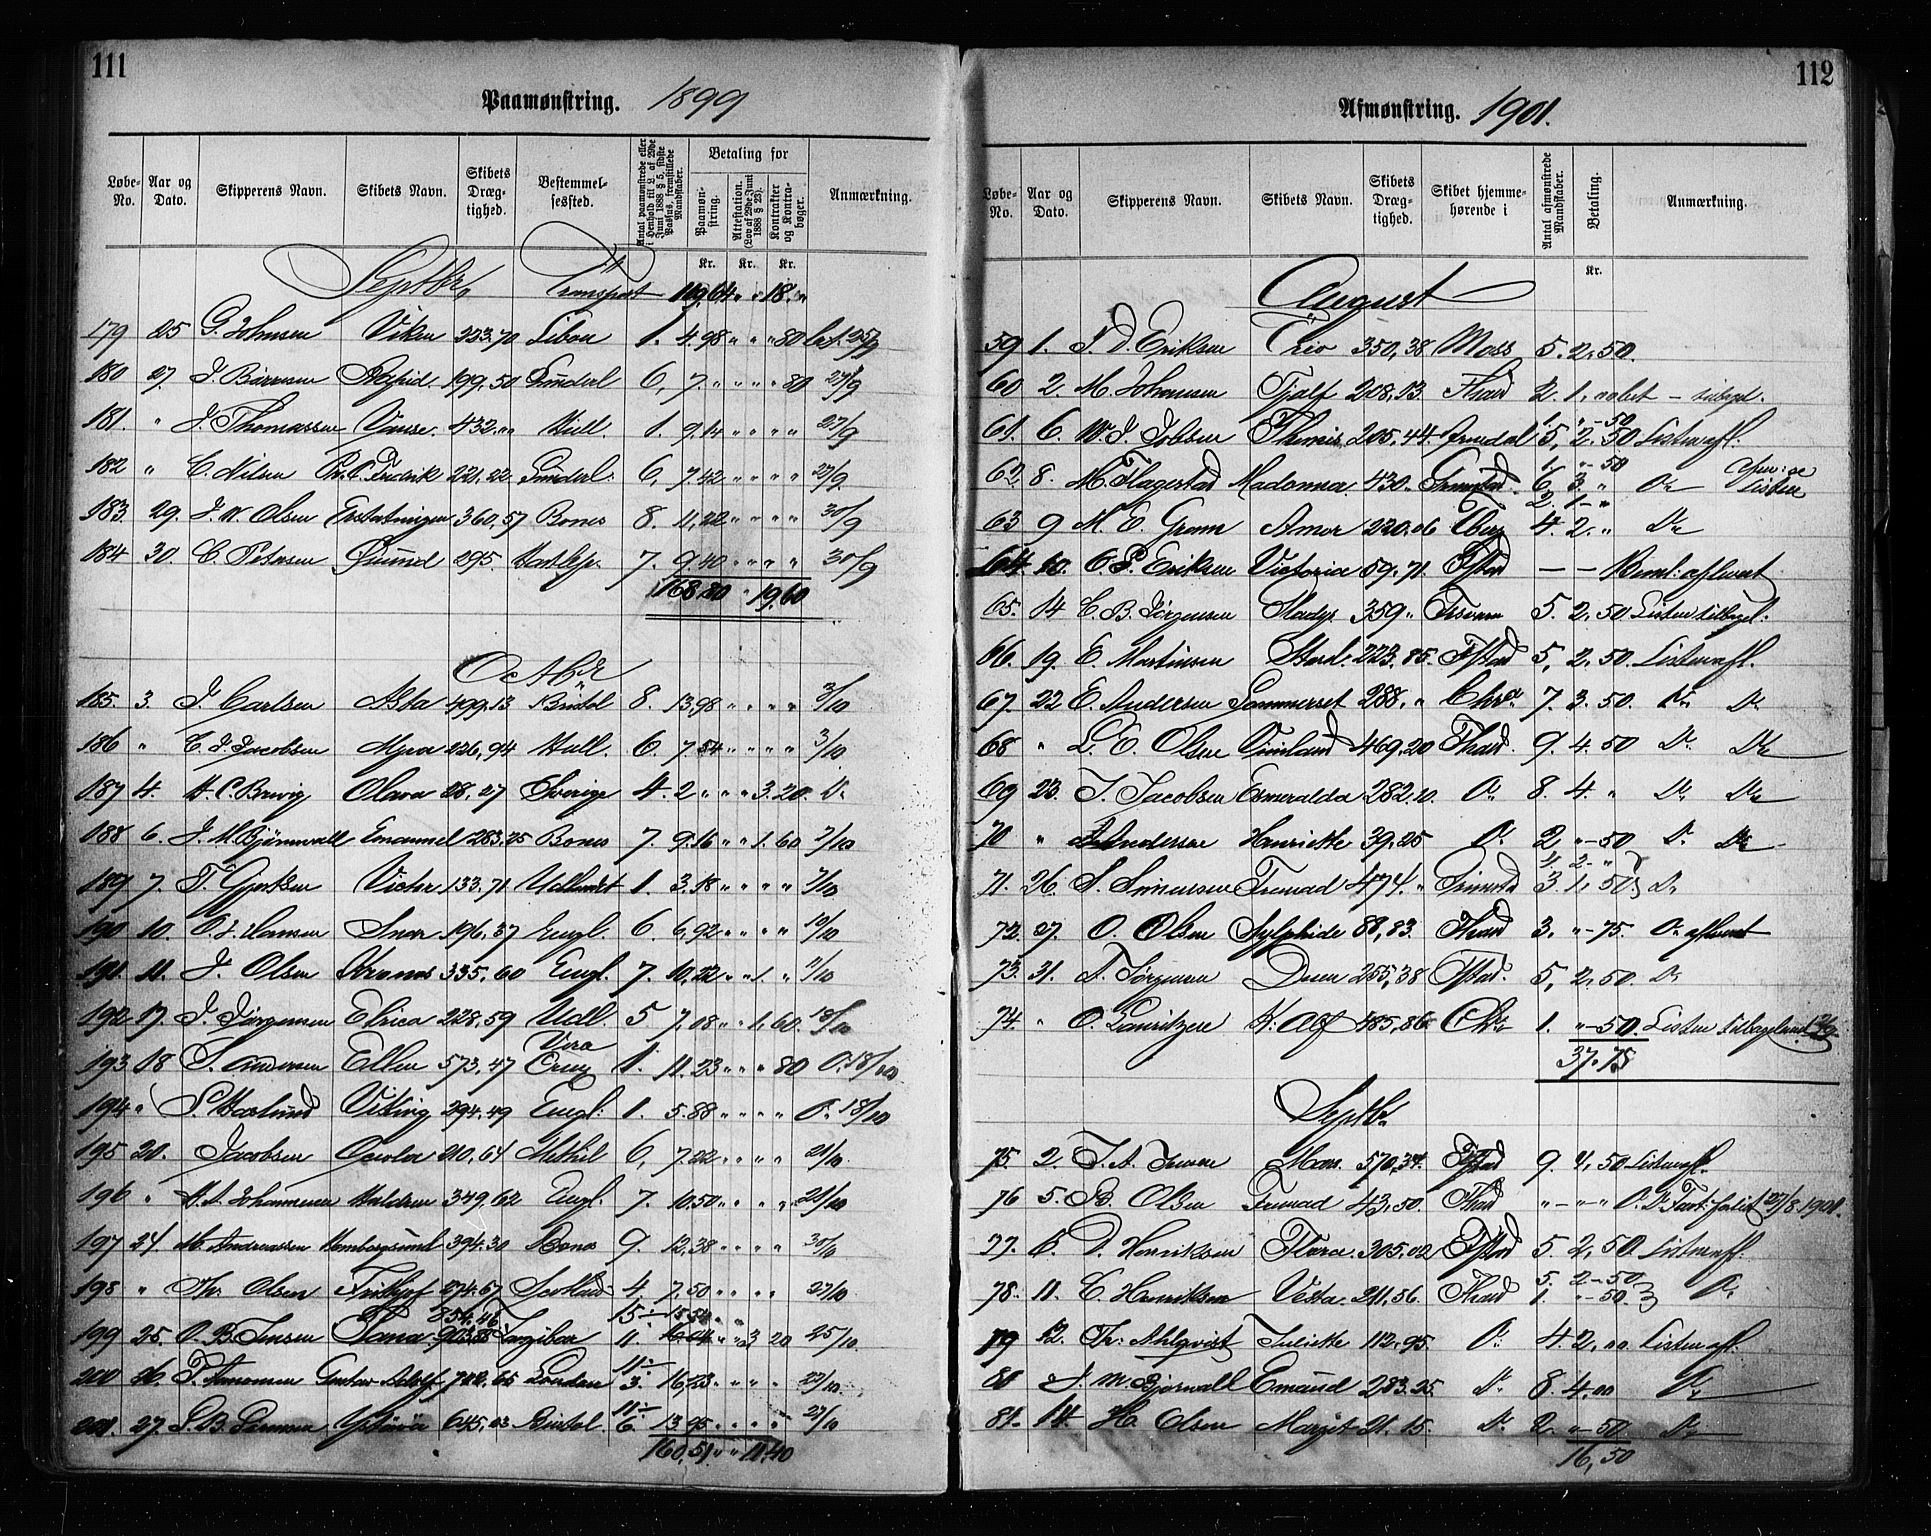 111
Paamønstring. 1899
Løbe-No. Aar og Dato. Skipperens Navn. Skibets Navn. Skibets Dræg-tighed. Bestemmel-sessted. Antal paamønstrede eller i Henhold til L. af 29de Juni 1888 § 5, sidste Passus, fremstillede Mandskaber. Betaling for Paamøn-string. Attestation. (Lov af 29de Juni 1888 § 23). Kontrakter og Kontra-bøger. Anmærkning.
Kr. Kr. Kr.
Septbr Transport 119,64 " " 18. "
179 25 G. Johnsen Viken 223,70 Libau 1. 4.98 " " " 80
180 27 J. Børresen 199,50 Sunderl 6, 7. " " " " 80 27/9
181. " J. Thomassen Vanse. 432 "" Hull. 1. 9.14 " " " " 27/9
182 " C. Nilsen Pr. C. Fredrik 221,22 Sunderl. 6, 7.42 " " " " 29/9
183. 29. J. W. Olsen Erstatningen 360,57 Bones 8. 11,22 " " " " 30/9
184 30. C. Petersen Øsund 295 Hartlep. 7. 9.40 " " " " 30/9
168.80 " 19,60
Octbr
185. 3. J. Carlsen Asta 499,13 Bristol 8. 13,98 " " " " 3/10
186 " C. J. Jacobsen Myra 226,94 Hull. 6. 7.54 " " " " 3/10
187 4. H. C. Brevig Olava 28,27 Sverige 4. 2 " " " 3.20. Do
188 6. J. M. Bjørnwall Emanuel 283.25 Bones 7. 9.16 " " 1. 60 7/10
189 7. T. Gjertsen Victor 133.71 Udlandet 1. 3.18 " " " " 7/10
190 10. O. J. Hansen Snar 196,37 Engl. 6. 6,92 " " " " 10/10
191. 11. J. Olsen Kronos 335,60 Engl. 7. 10,22 " " 1. " 11/10
192 17. J. Jørgensen Elrica 228,59 Udl. 5 7,08 " " 1, 60. 18/10
193 18 S. Andersen Ellen 573,47 Vera Cruz 1. 11.23 " " " 80 D. 18/10
194 " S. Haslund Viking 294.49 Engl: 1. 5.88 " " " " D. 18/10
195 20. Jacobsen 210,64 Methil 6, 7.22 " " " " 21/10
196 " A. A. Johannesen Halden 349,62 Engl. 7. 10.50 " " " " 21/10
197 24. M. Andreassen Hamborgsund 394.30 Bones 9. 12,38 " " " "
198 " Th. Olsen Fritjof 274.67 Scotland 4, 7.50 " " " " 27/10
854,46 15 15.54
199 25. O. B. Jensen Fama 903.88 Zanzibar 11. 16.04 " " 3 20 25/10
200 26. T. Amonsen Gustav Adolf 722.65 London 11 3. 16,23 " " " 27/10
201. 27. S. B. 645,03 Bristol. 11 6. 13,95 " " " " 27/10
160,51 " " 11.40
112
Afmønstring. 1901.
Løbe-No. Aar og Dato. Skipperens Navn. Skibets Navn. Skibets Dræg-tighed. Skibet hjemme-hørende i Antal afmønstrede Mandskaber. Betaling. Anmærkning.
Kr.
August
59 1. J. D. Eriksen Trio 350,38 Moss 5. 2. 50.
60 2. M. Johansen Tjalf 228,13. Fhald 2. 1, "
1. "-50
61. 6. W. J. Jobsen Themis 205,44. Arendal 5, 2.50 Listen afl:
1. "-50
62. 8. M. Flagestad Madonna 430. Grimstad. 6 3. " Do Listen
2. 1-"
63 9 M. E. Gram Amor 220.06 Tberg 4. 2. " Do
64. 10. O. P. Eriksen Victoria 59.71. Fstad — —
65. 14 C. B. Jørgensen Gladys 359 " 5. 2,50 Listen tilbagel.
66. 19. E. Martinsen 223,85. Fstad 5, 2,50 Listen afl.
67. 22 E. Andersen Sommerset 288, " Chra 7. 3. 50. Do Do
68 " L. E. Olsen Vinland 469.20 Fhald. 9. 4. 50 Do Do
69 23. J. Jacobsen Esmeralda 282.10. Do 8. 4. " Do Do
70 " Andersen Henriette 39.25 Do 2 "-50 D. Do
4. 2-"
71. 26. S. Simensen Fremad 474. " Grimstd 3. 1, 50 Do
72. 27. O. Olsen Sylphide 88,83. Fhald 3. "-75. Do afleveret
73. 31. A. Jørgensen Duen 255,38 Fstad. 5, 2,50. Do
74. " O. Lauritzen K. Alf 485,86 Chra 1. "-50. Listen tilbageland
37.75
Septbr
75. 2. J. A. Jensen Mars. 570,34. Fstad 9. 4,50 Listen afl.
76 5. B. Olsen Fremad 43,50. Fhald " - " - " D. 27/8 1901.
77. 6. D. Henriksen Flora. 305,02 Fstad 5. 2,50 Listen afl.
5. 2-50
78. 11. C. Henriksen Vesta. 211,56. Fhald 1. "-50. Do
79 12. Th. Ahlqvist Juliette 112.95. Do 4. 2. "" Listen afl.
80 J. M. Bjørwall Emaud 283.25. Do 8. 4. "" Do
81. 14. H. Olsen Margit 21.15. Do 2. "-50 Do
16,50